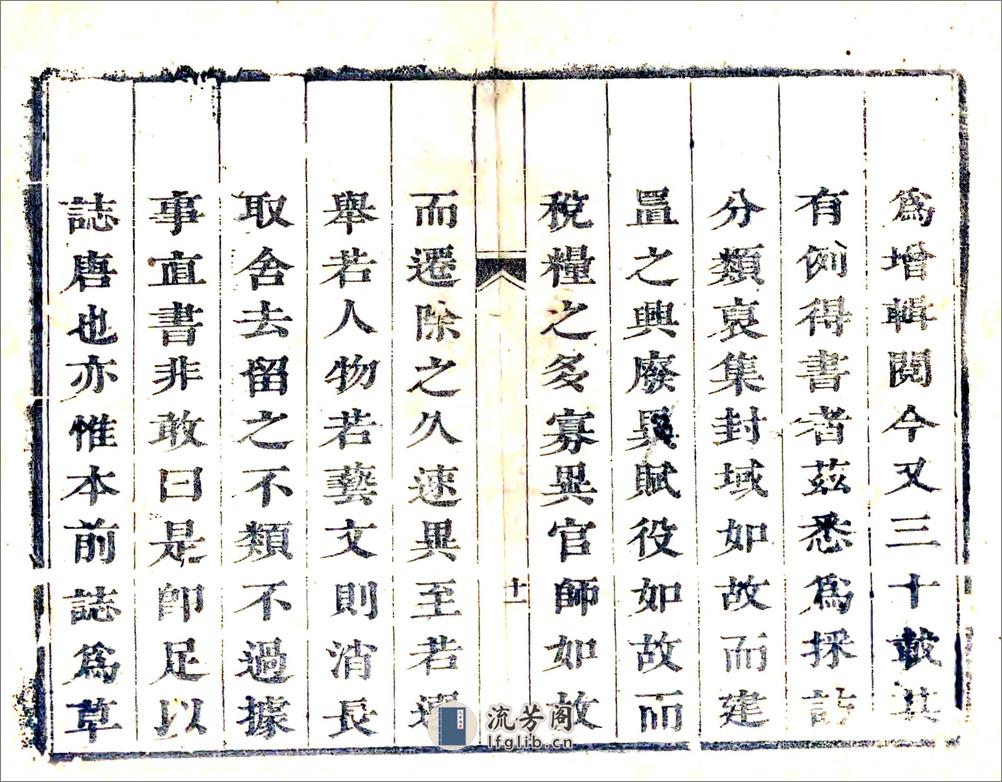 爲增輯閱今又三十載其
有例得書者茲悉爲採訪
分類裒集封域如故而建
置之興廢異賦役如故而
稅糧之多寡異官師如故
十一
而遷除之久速異至若選
舉若人物若藝文則消長
取舍去留之不類不過據
事直書非敢曰是卽足以
誌唐也亦惟本前誌爲草
流芳阁
lfglib.cn